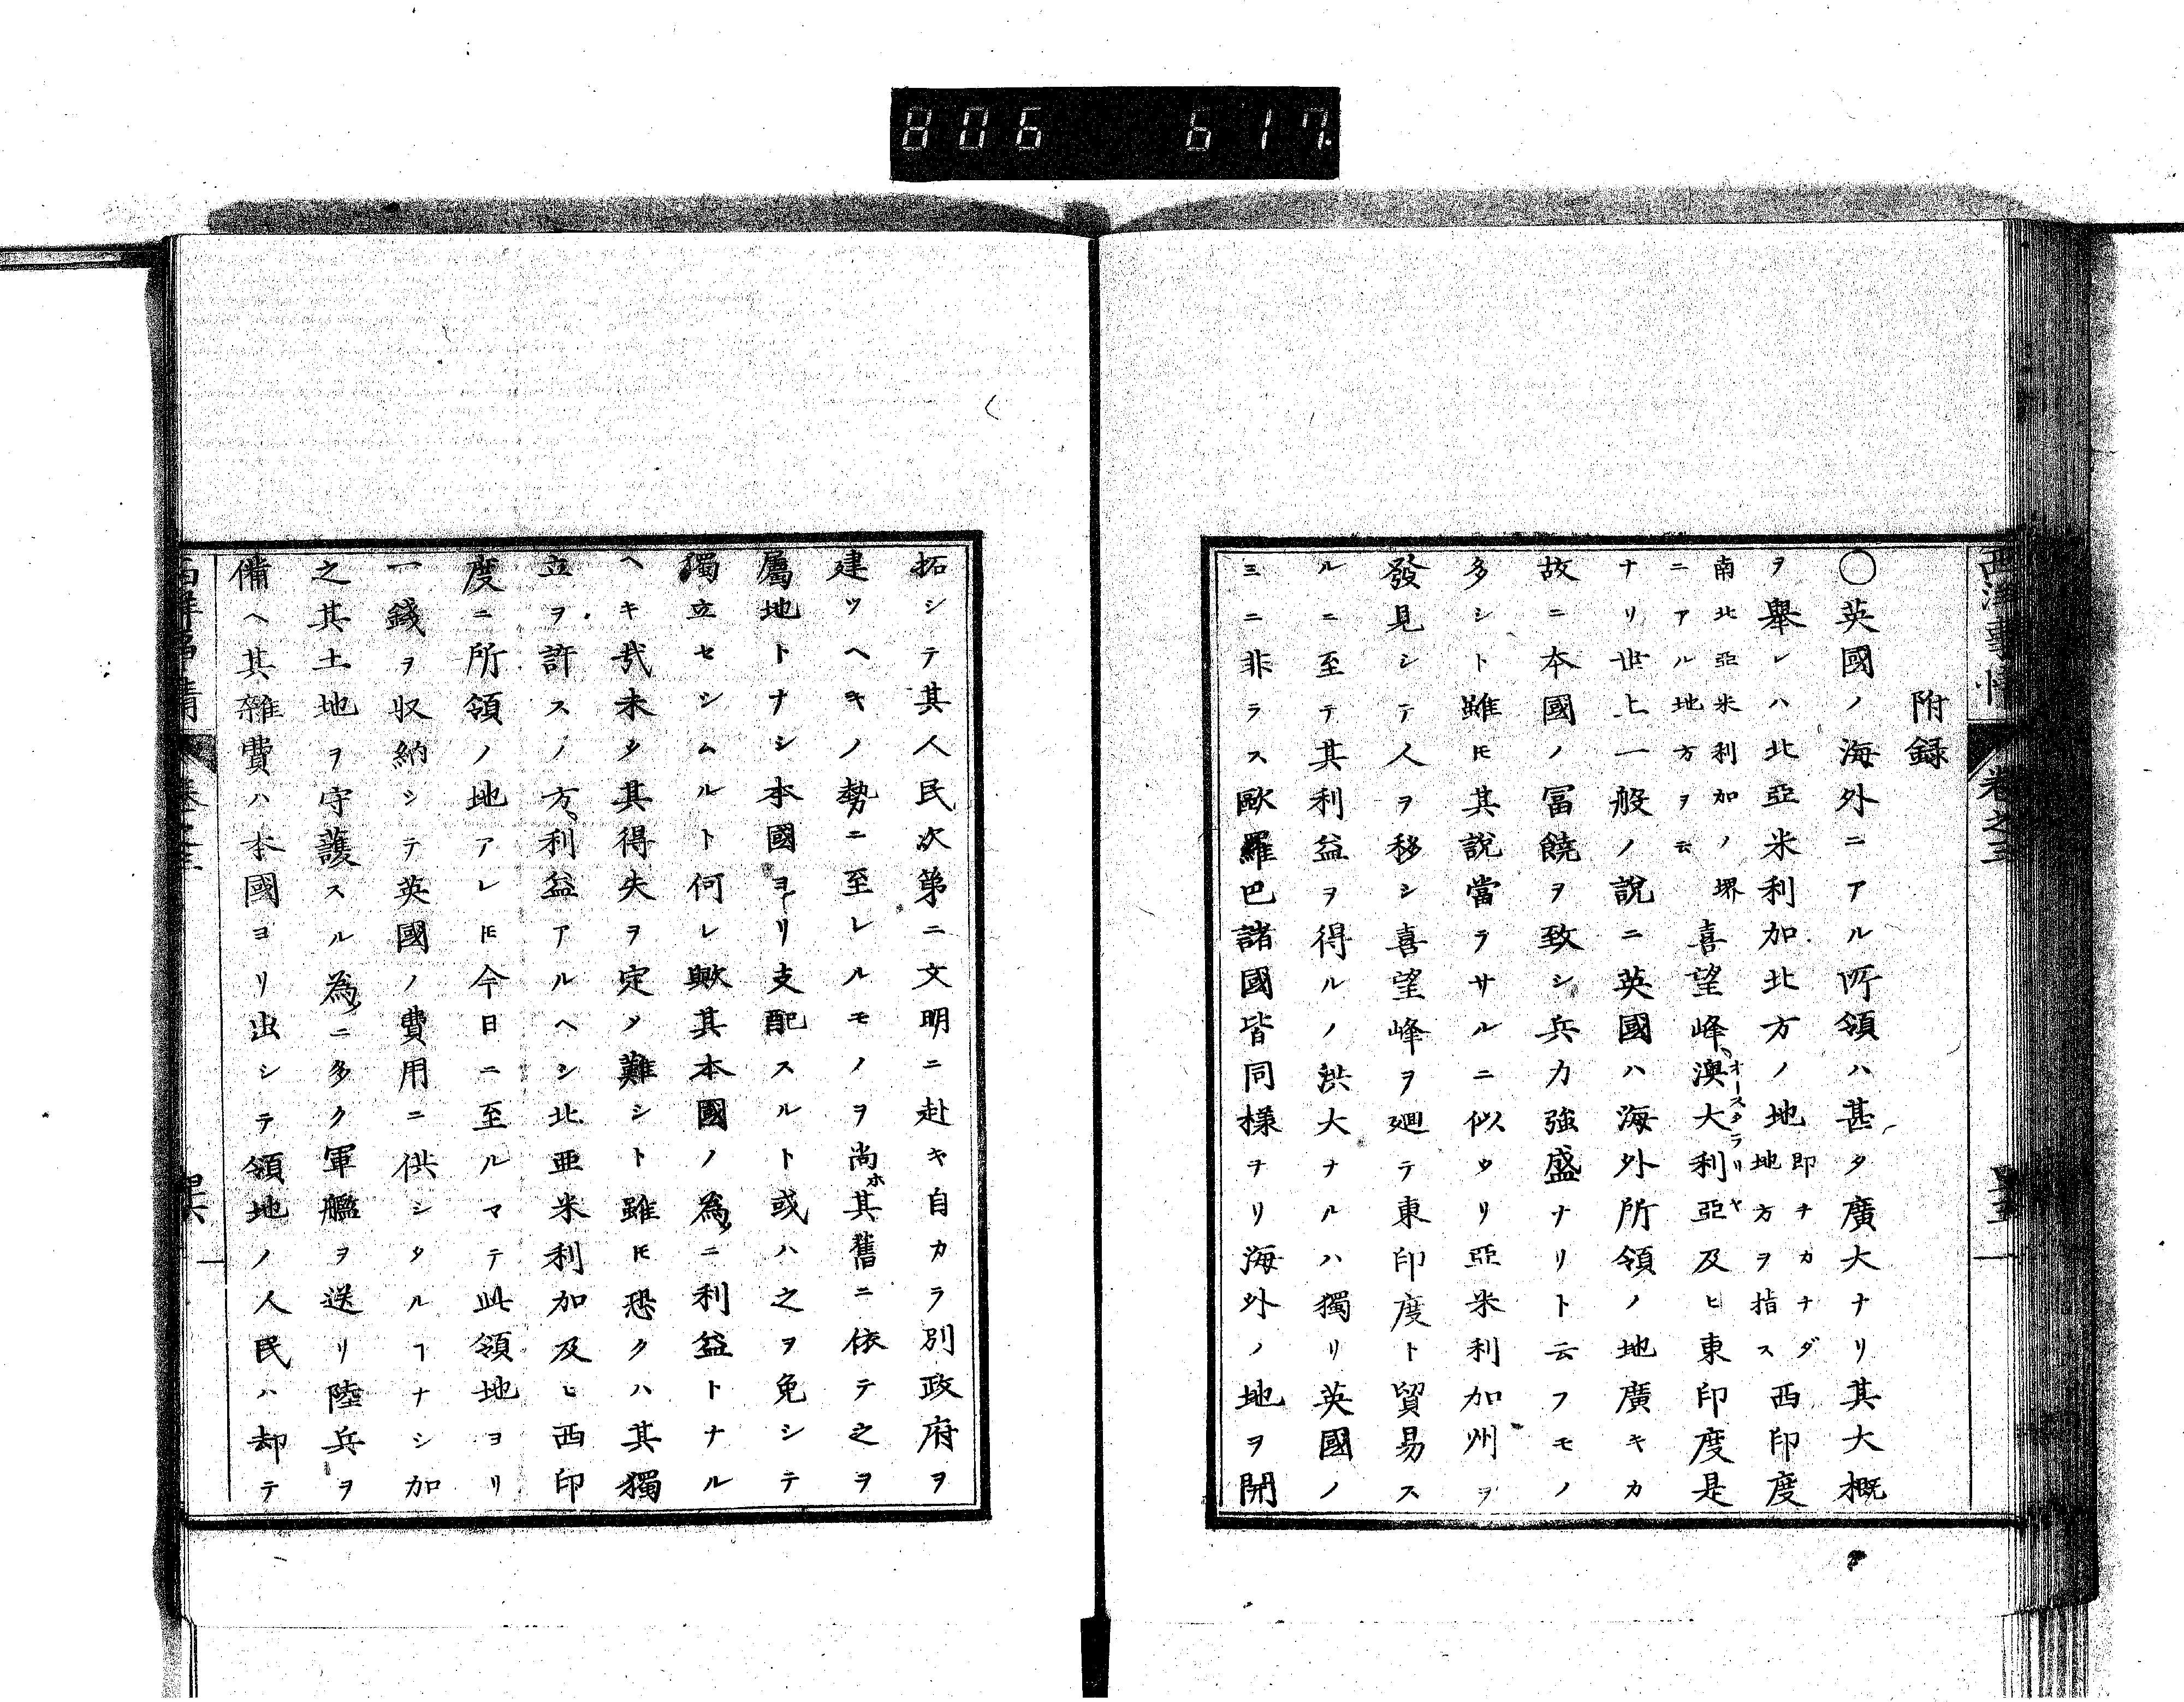 806 617.
附録
○英國ノ海外ニアル所領ハ甚タ廣大ナリ其大概
ヲ舉レハ北亞米利加北方ノ地即チカナダ地方ヲ指ス西印度
南北亞米利加ノ堺ニアル地方ヲ云喜望峰、澳大利亞オースタラリヤ及ヒ東印度是
ナリ世上一般ノ說ニ英國ハ海外所領ノ地廣キカ
故ニ本國ノ冨饒ヲ致シ兵力強盛ナリト云フモノ
多シト雖𪜈其說當ラサルニ似タリ亞米利加州ヲ
發見シテ人ヲ移シ喜望峰ヲ廻テ東印度ト貿易ス
ルニ至テ其利益ヲ得ルノ洪大ナルハ獨リ英國ノ
三ニ非ラス歐羅巴諸國皆同様ナリ海外ノ地ヲ開
拓シテ其人民次第ニ文明ニ赴キ自カラ別政府ヲ
建ツヘキノ勢ニ至レルモノヲ尚ホ其舊ニ依テ之ヲ
屬地トナシ本國ヨリ支配スルト或ハ之ヲ免シテ
獨立セシムルト何レ歟其本國ノ為メニ利益トナル
ヘキ哉未タ其得失ヲ定メ難シト雖𪜈恐クハ其獨
立ヲ許スノ方、利益アルヘシ北亞米利加及ヒ西印
度ニ所領ノ地アレ𪜈今日ニ至ルマテ此領地ヨリ
一錢ヲ収納シテ英國ノ費用ニ供シタルヿナシ加
之其土地ヲ守護スル為メニ多ク軍艦ヲ送リ陸兵ヲ
備ヘ其雜費ハ本國ヨリ出シテ領地ノ人民ハ却テ